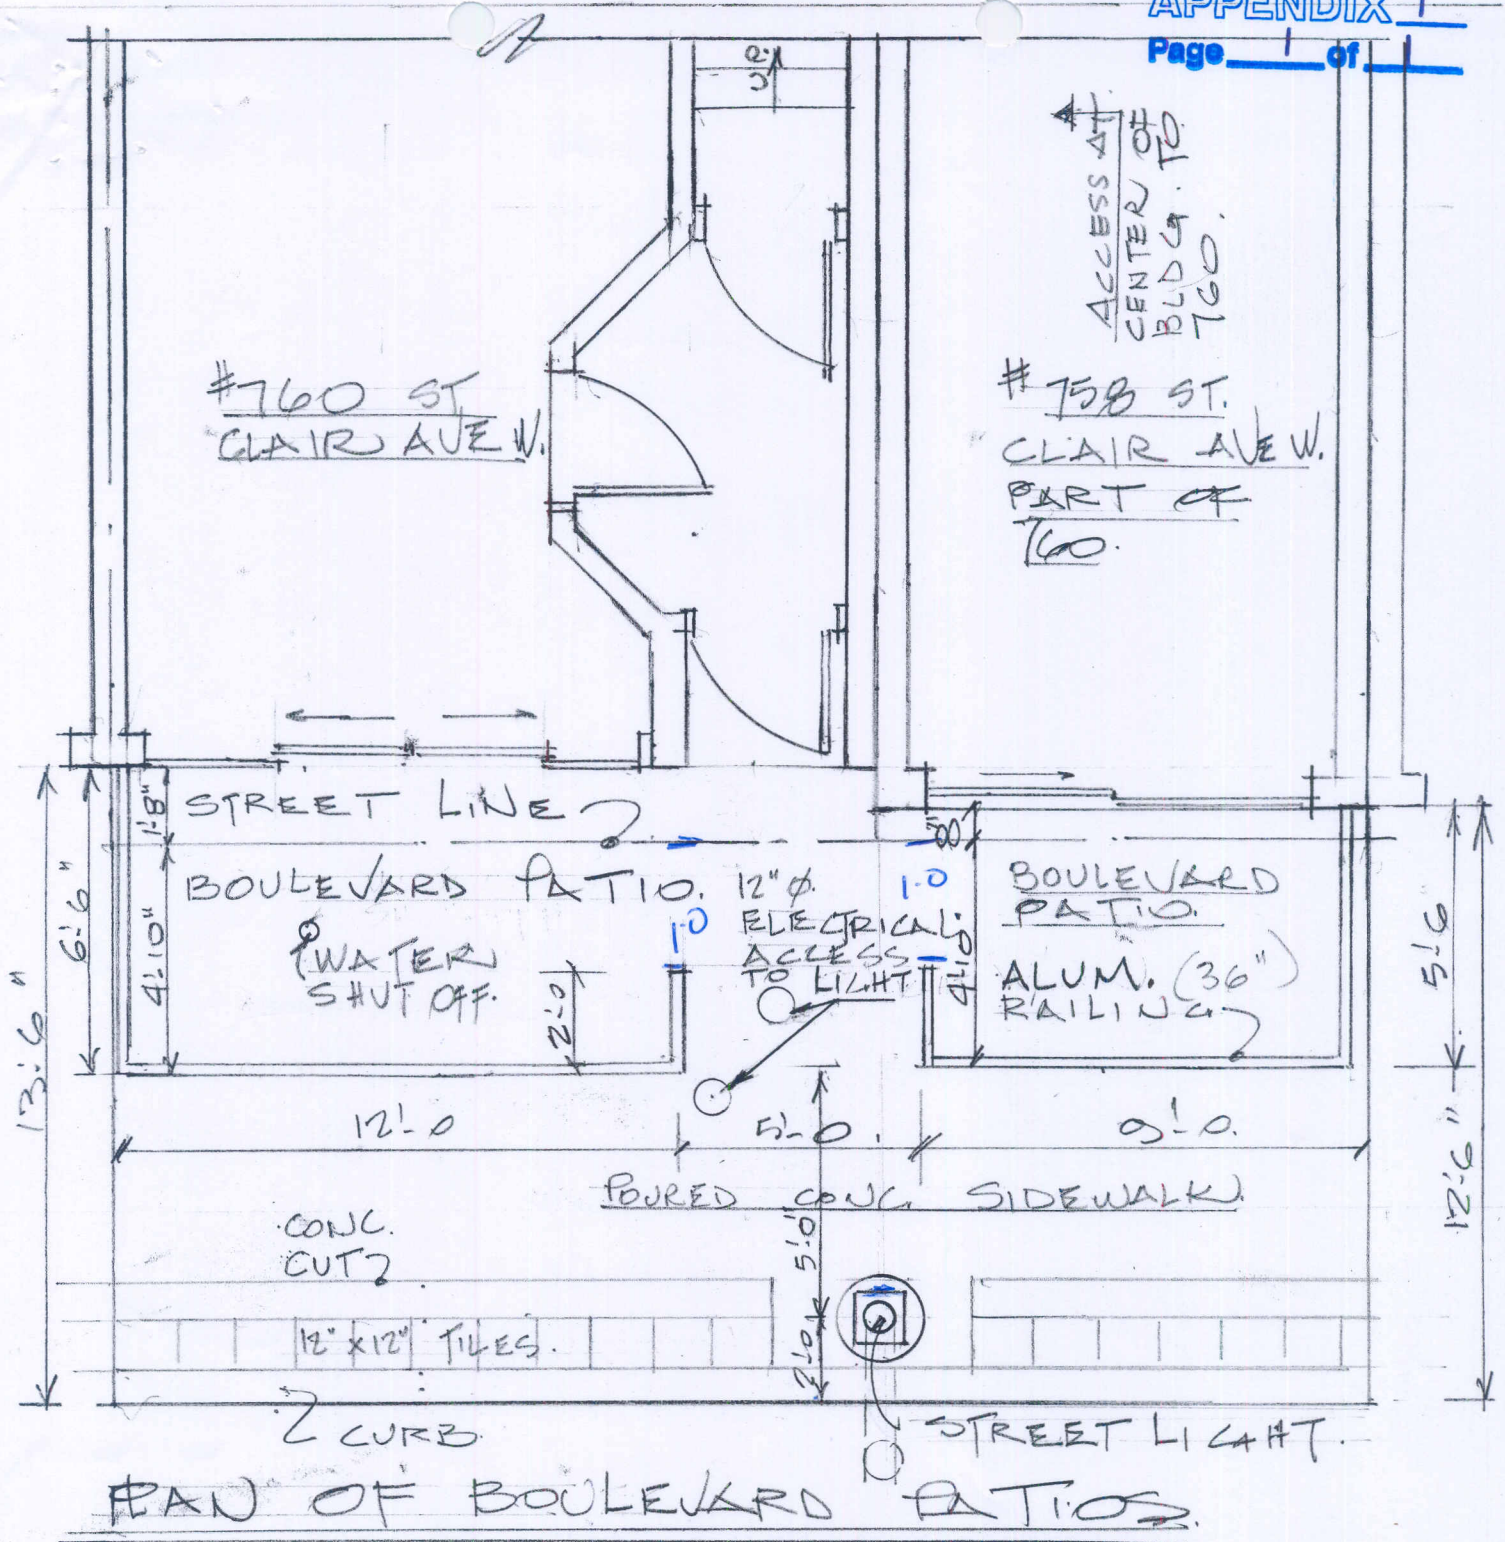 APPENDIX 1
Page 1 of 1
UP.
ACCESS AT
CENTER OF
BLDG. TO
760.
#760 ST.
CLAIR AVE W.
#758 ST.
CLAIR AVE W.
PART OF
760.
STREET LINE
1'-8"
BOULEVARD PATIO.
WATER
SHUT OFF.
6'-6"
4'-10"
13'-6"
2'-0
1-0
12" Ø.
ELECTRICAL
ACCESS
TO LIGHT
1-0
4'-10"
BOULEVARD
PATIO.
ALUM. (36")
RAILING
5'-6
12'-6"
12'-0
5'-0.
9'-0.
POURED CONC. SIDEWALK.
CONC.
CUT
5'-0"
12" X 12" TILES.
2'-0
CURB.
STREET LIGHT.
PLAN OF BOULEVARD PATIOS.